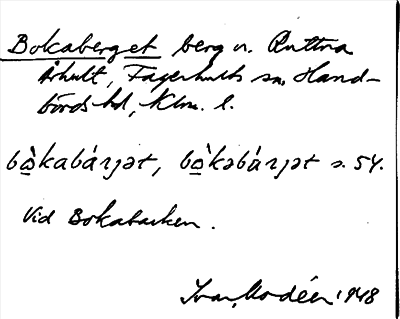 Bokaberget berg n. Ruttna
Århult, Fagerhults sn, Hand-
börds hd, Klm. l.
bò̲kabárjət, bò̲kəbárjət s. 54.
Vid Bokabacken.
Ivar Modéer 1948